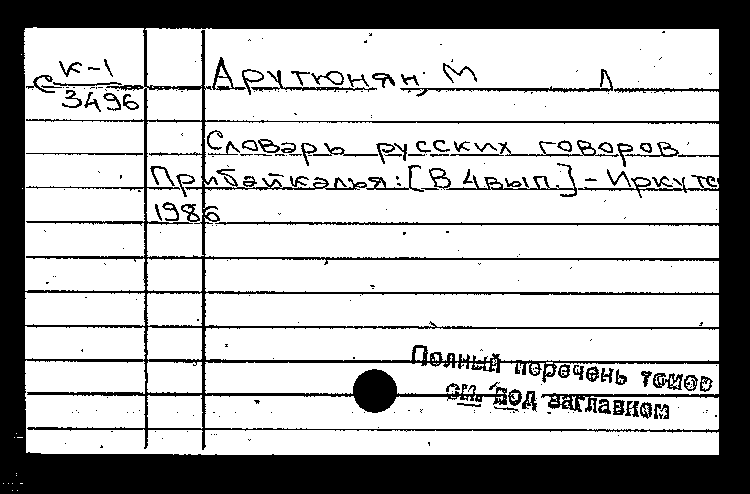 К-1
С
3496
Арутюнян, М Л
Словарь русских говоров
Прибайкалья: [В 4 вып.] - Иркутс
1986
Полный перечень томов
см. под заглавием